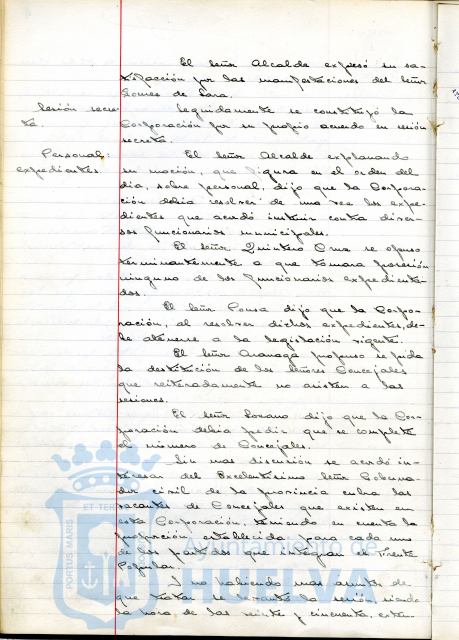 El Señor Alcalde expresó su sa-
tisfacción por las manifestaciones del Señor
Gomez de Lara.
Sesión secre-
ta.
Seguidamente se constituyó la
Corporación por su propio acuerdo en sesión
secreta.
Personal:
expedientes.
El Señor Alcalde explanando
su moción, que figura en el orden del
dia, sobre personal, dijo que la Corpora-
ción debia resolver de una vez los expe-
dientes que acordó instruir contra diver-
sos funcionarios municipales.
El Señor Quintero Cruz se opuso
terminantemente a que tomara posesión
ninguno de los funcionarios expedienta-
dos.
El Señor Ponsa dijo que la Corpo-
ración, al resolver dichos expedientes, de-
be atenerse a la legislación vigente.
El Señor propuso se pida
la destitución de los Señores Concejales
que reiteradamente no asisten a las
sesiones.
El Señor Lozano dijo que la Cor-
poración debia pedir que se complete
el número de Concejales.
Sin mas discusión se acordó in-
teresar del Excelentísimo Señor Goberna-
dor civil de la provincia cubra las
vacantes de Concejales que existen en
esta Corporación, teniendo en cuenta la
proporción establecida para cada uno
de los partidos que integran el Frente
Popular.
Y no habiendo mas asuntos de
que tratar se levantó la sesión, siendo
la hora de las veinte y cincuenta, exten-
PORTUS MARIS ET TERR
Ayuntamiento de
HUELVA